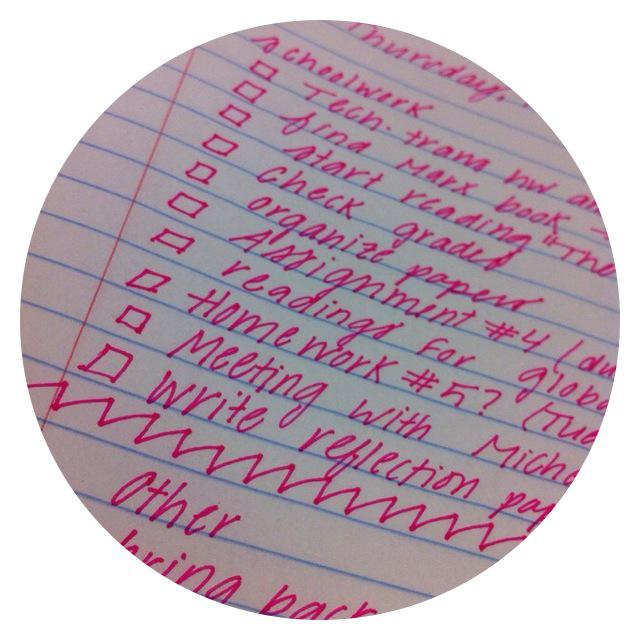 Thursday,
schoolwork
Tech. trans hw
find Marx book -
start reading "The
check grades
organize papers
Assignment #4 (du
readings for globa
Homework #5? (Tue
Meeting with Miche
Write reflection pap
Other
bring back